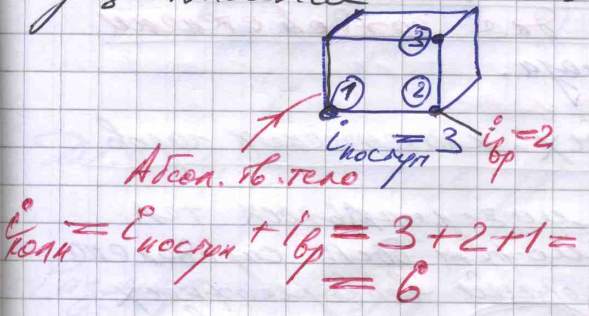 3
1 2
i поступ = 3 i вр = 2
Абсол. тв. тело
i полн = i поступ + i вр = 3 + 2 + 1 =
= 6